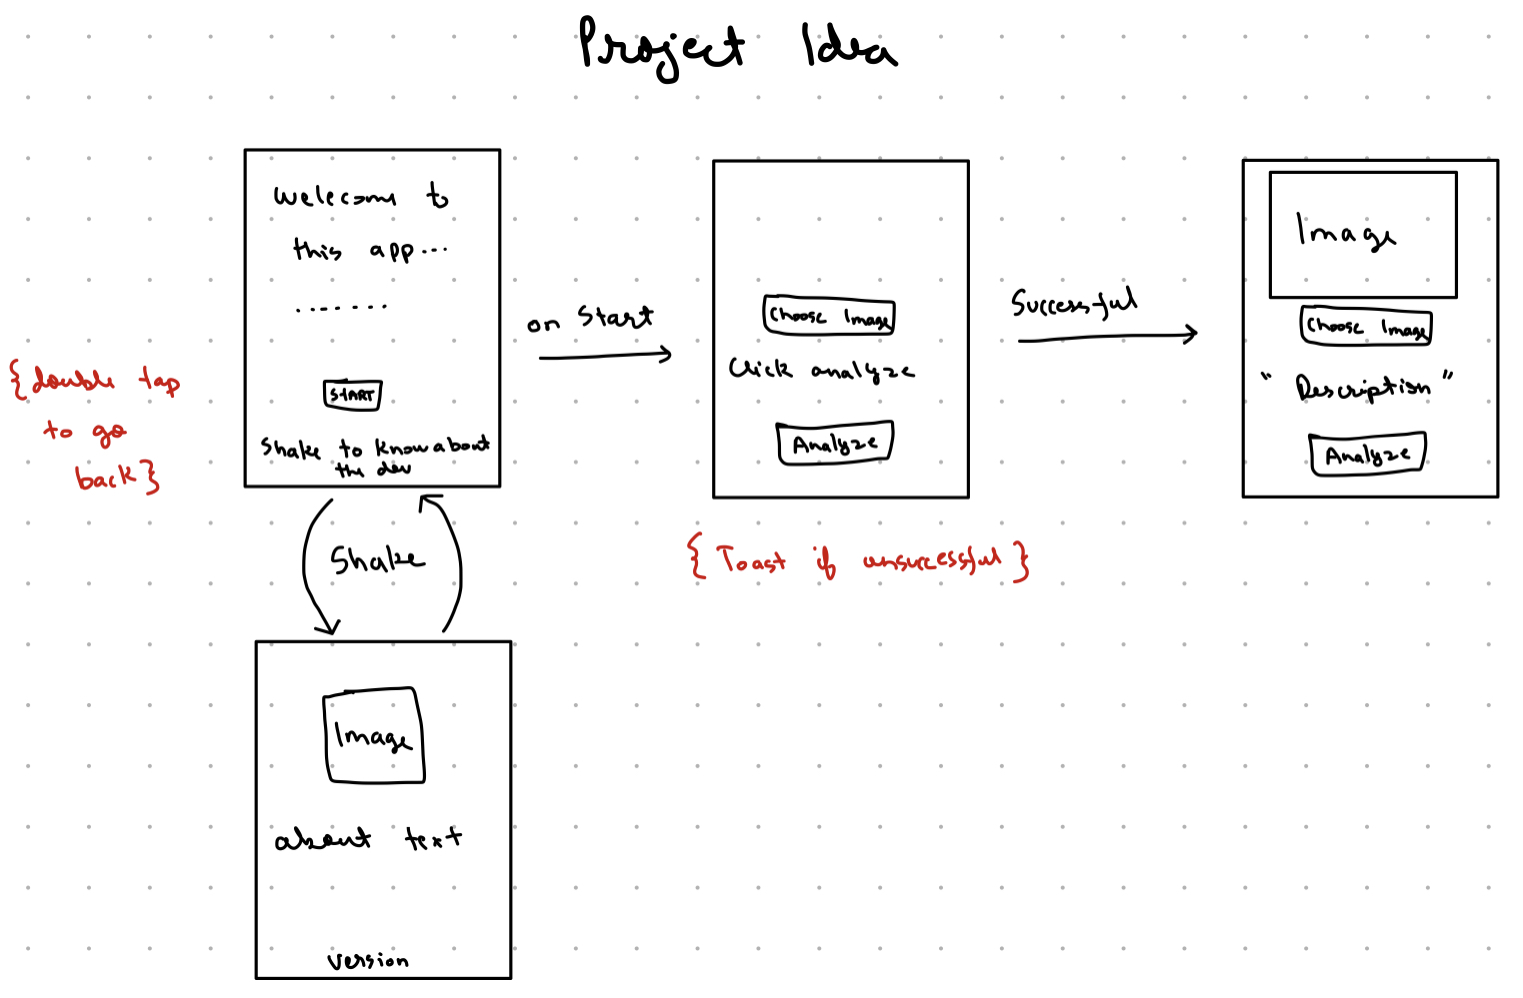 Project Idea
Welcome to
this app...
........
START
Shake to know about
the dev
{double tap
to go
back}
on Start
Choose Image
Click analyze
Analyze
{Toast if unsuccessful}
Successful
Image
Choose Image
"Description"
Analyze
Shake
Image
about text
version